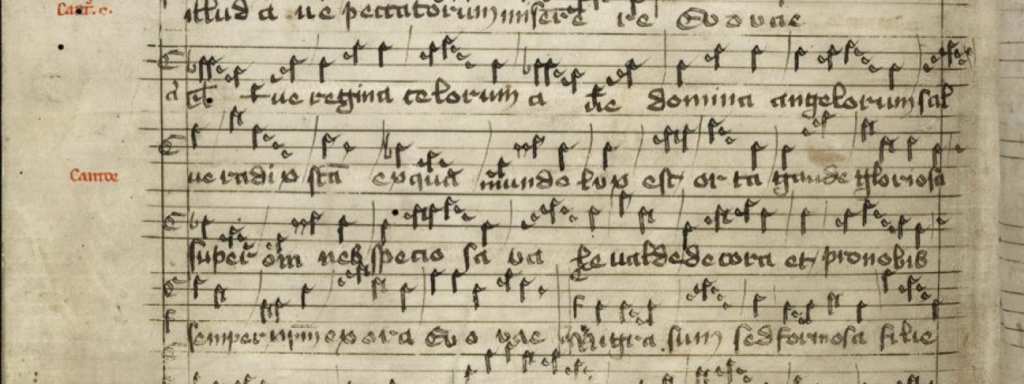 illud a ue peccatorum miserere Euouae
ue regina celorum a ue domina angelorum sal
ue radix sca ex qua mundo lux est orta gaude gloriosa
Cantor
super omnes speciosa ua le ualde decora et pro nobis
semper xpm exora Euouae Nigra sum sed formosa filie